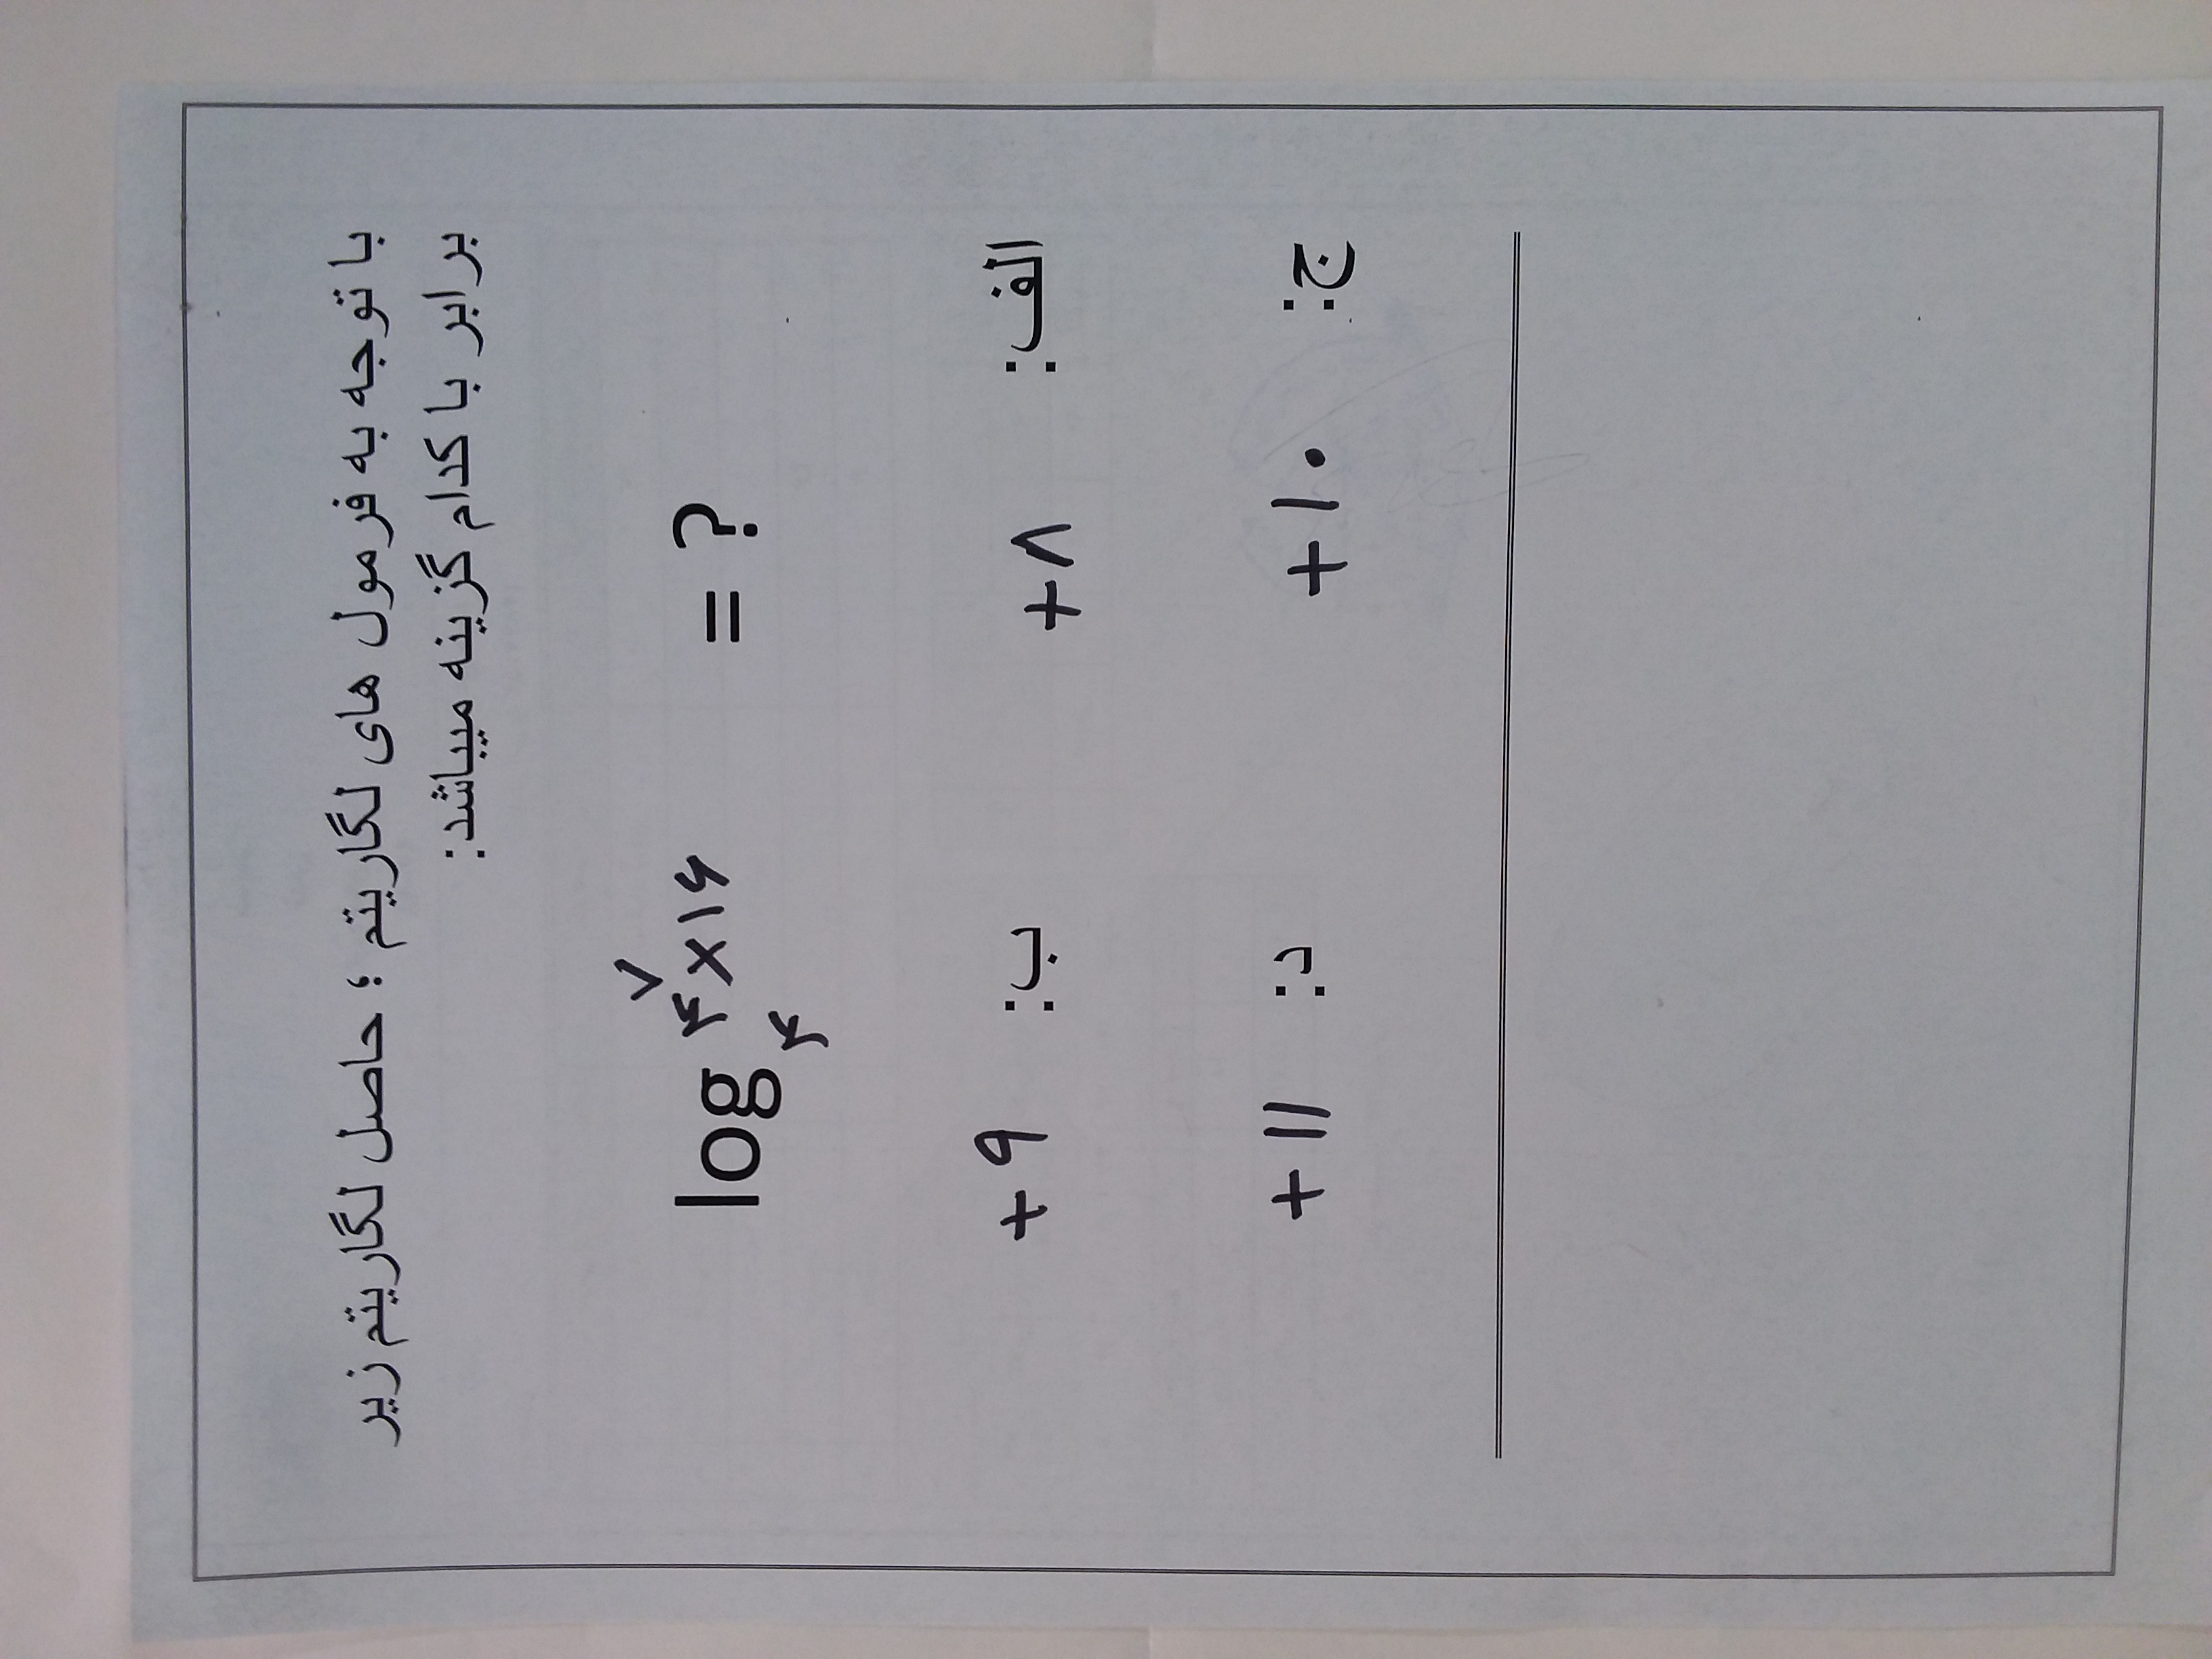 با توجه به فرمول های لگاریتم ؛ حاصل لگاریتم زیر
برابر با کدام گزینه میباشد:
۷
log ۴×۱۶ = ?
۴
الف: +۸ ب: +۹
ج: +۱۰ د: +۱۱